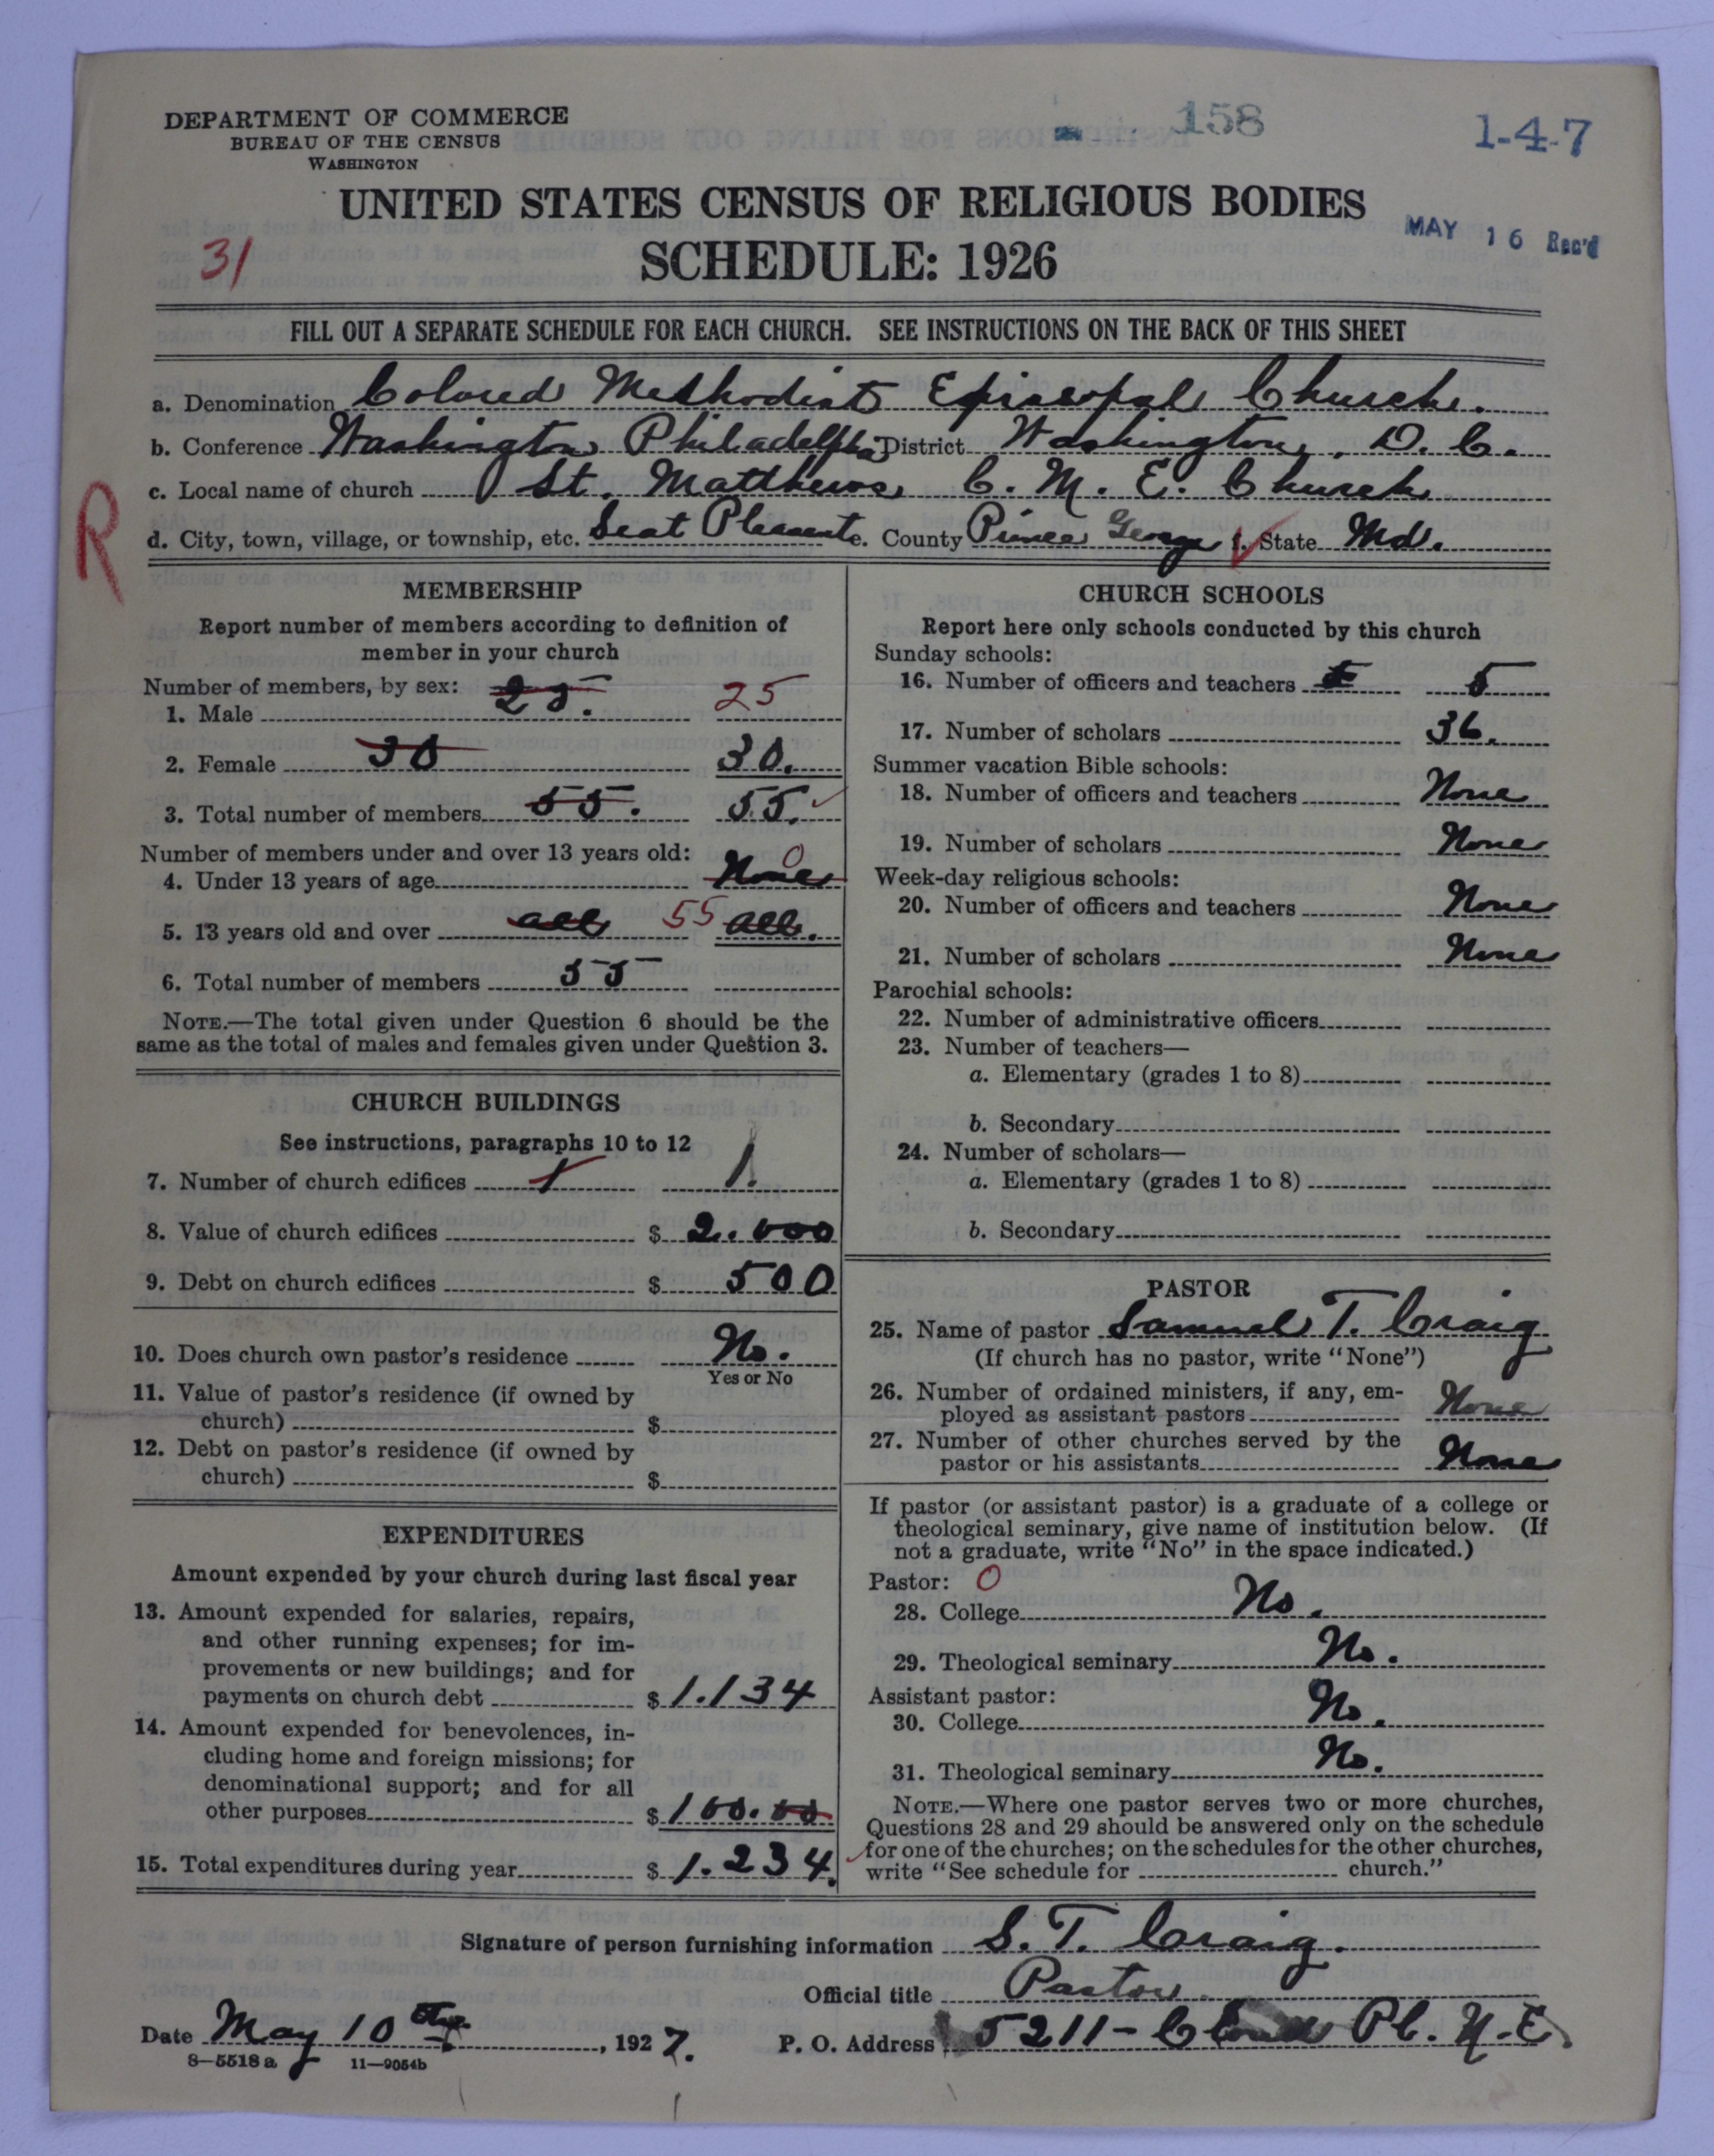 DEPARTMENT OF COMMERCE
BUREAU OF THE CENSUS
WASHINGTON
158
1-4-7
UNITED STATES CENSUS OF RELIGIOUS BODIES
MAY 16 Rec'd
31
SCHEDULE: 1926
FILL OUT A SEPARATE SCHEDULE FOR EACH CHURCH. SEE INSTRUCTIONS ON THE BACK OF THIS SHEET
a. Denomination Colored Methodist Episcopal Church.
b. Conference Washington Philadelphia District Washington, D. C.
c. Local name of church St. Matthews C. M. E. Church
R
d. City, town, village, or township, etc. Seat Pleasant e. County Prince George f. State Md.
MEMBERSHIP
Report number of members according to definition of
member in your church
Number of members, by sex:
1. Male 25. 25
2. Female 30 30.
3. Total number of members 55. 55.
Number of members under and over 13 years old:
4. Under 13 years of age None 0
5. 13 years old and over all 55 all.
6. Total number of members 55
NOTE.—The total given under Question 6 should be the
same as the total of males and females given under Question 3.
CHURCH BUILDINGS
See instructions, paragraphs 10 to 12
7. Number of church edifices 1 1.
8. Value of church edifices $ 2.000
9. Debt on church edifices $ 500
10. Does church own pastor's residence No.
Yes or No
11. Value of pastor's residence (if owned by
church) $
12. Debt on pastor's residence (if owned by
church) $
EXPENDITURES
Amount expended by your church during last fiscal year
13. Amount expended for salaries, repairs,
and other running expenses; for im-
provements or new buildings; and for
payments on church debt $ 1.134
14. Amount expended for benevolences, in-
cluding home and foreign missions; for
denominational support; and for all
other purposes $ 100.00
15. Total expenditures during year $ 1.234.
CHURCH SCHOOLS
Report here only schools conducted by this church
Sunday schools:
16. Number of officers and teachers 5
17. Number of scholars 36.
Summer vacation Bible schools:
18. Number of officers and teachers None
19. Number of scholars None
Week-day religious schools:
20. Number of officers and teachers None
21. Number of scholars None
Parochial schools:
22. Number of administrative officers
23. Number of teachers—
a. Elementary (grades 1 to 8)
b. Secondary
24. Number of scholars—
a. Elementary (grades 1 to 8)
b. Secondary
PASTOR
25. Name of pastor Samuel T. Craig
(If church has no pastor, write "None")
26. Number of ordained ministers, if any, em-
ployed as assistant pastors None
27. Number of other churches served by the
pastor or his assistants None
If pastor (or assistant pastor) is a graduate of a college or
theological seminary, give name of institution below. (If
not a graduate, write "No" in the space indicated.)
Pastor: 0
28. College No.
29. Theological seminary No.
Assistant pastor:
30. College No.
31. Theological seminary No.
NOTE.—Where one pastor serves two or more churches,
Questions 28 and 29 should be answered only on the schedule
for one of the churches; on the schedules for the other churches,
write "See schedule for church."
Signature of person furnishing information S. T. Craig.
Official title Pastor.
Date May 10th, 1927. P. O. Address 5211- Pl. N.E.
8—5518a 11—9054b